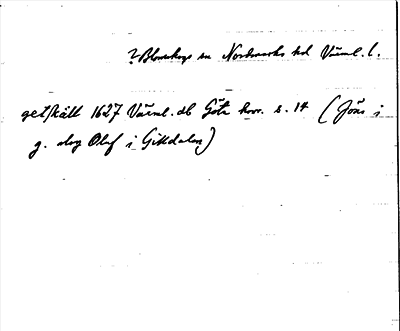 ? Blomskogs sn Nordmarks hd Värml. l.
getskäll 1627 Värml. db Göta hovr. s. 14 (Jöns i
g. Oluf i Gittdalen)